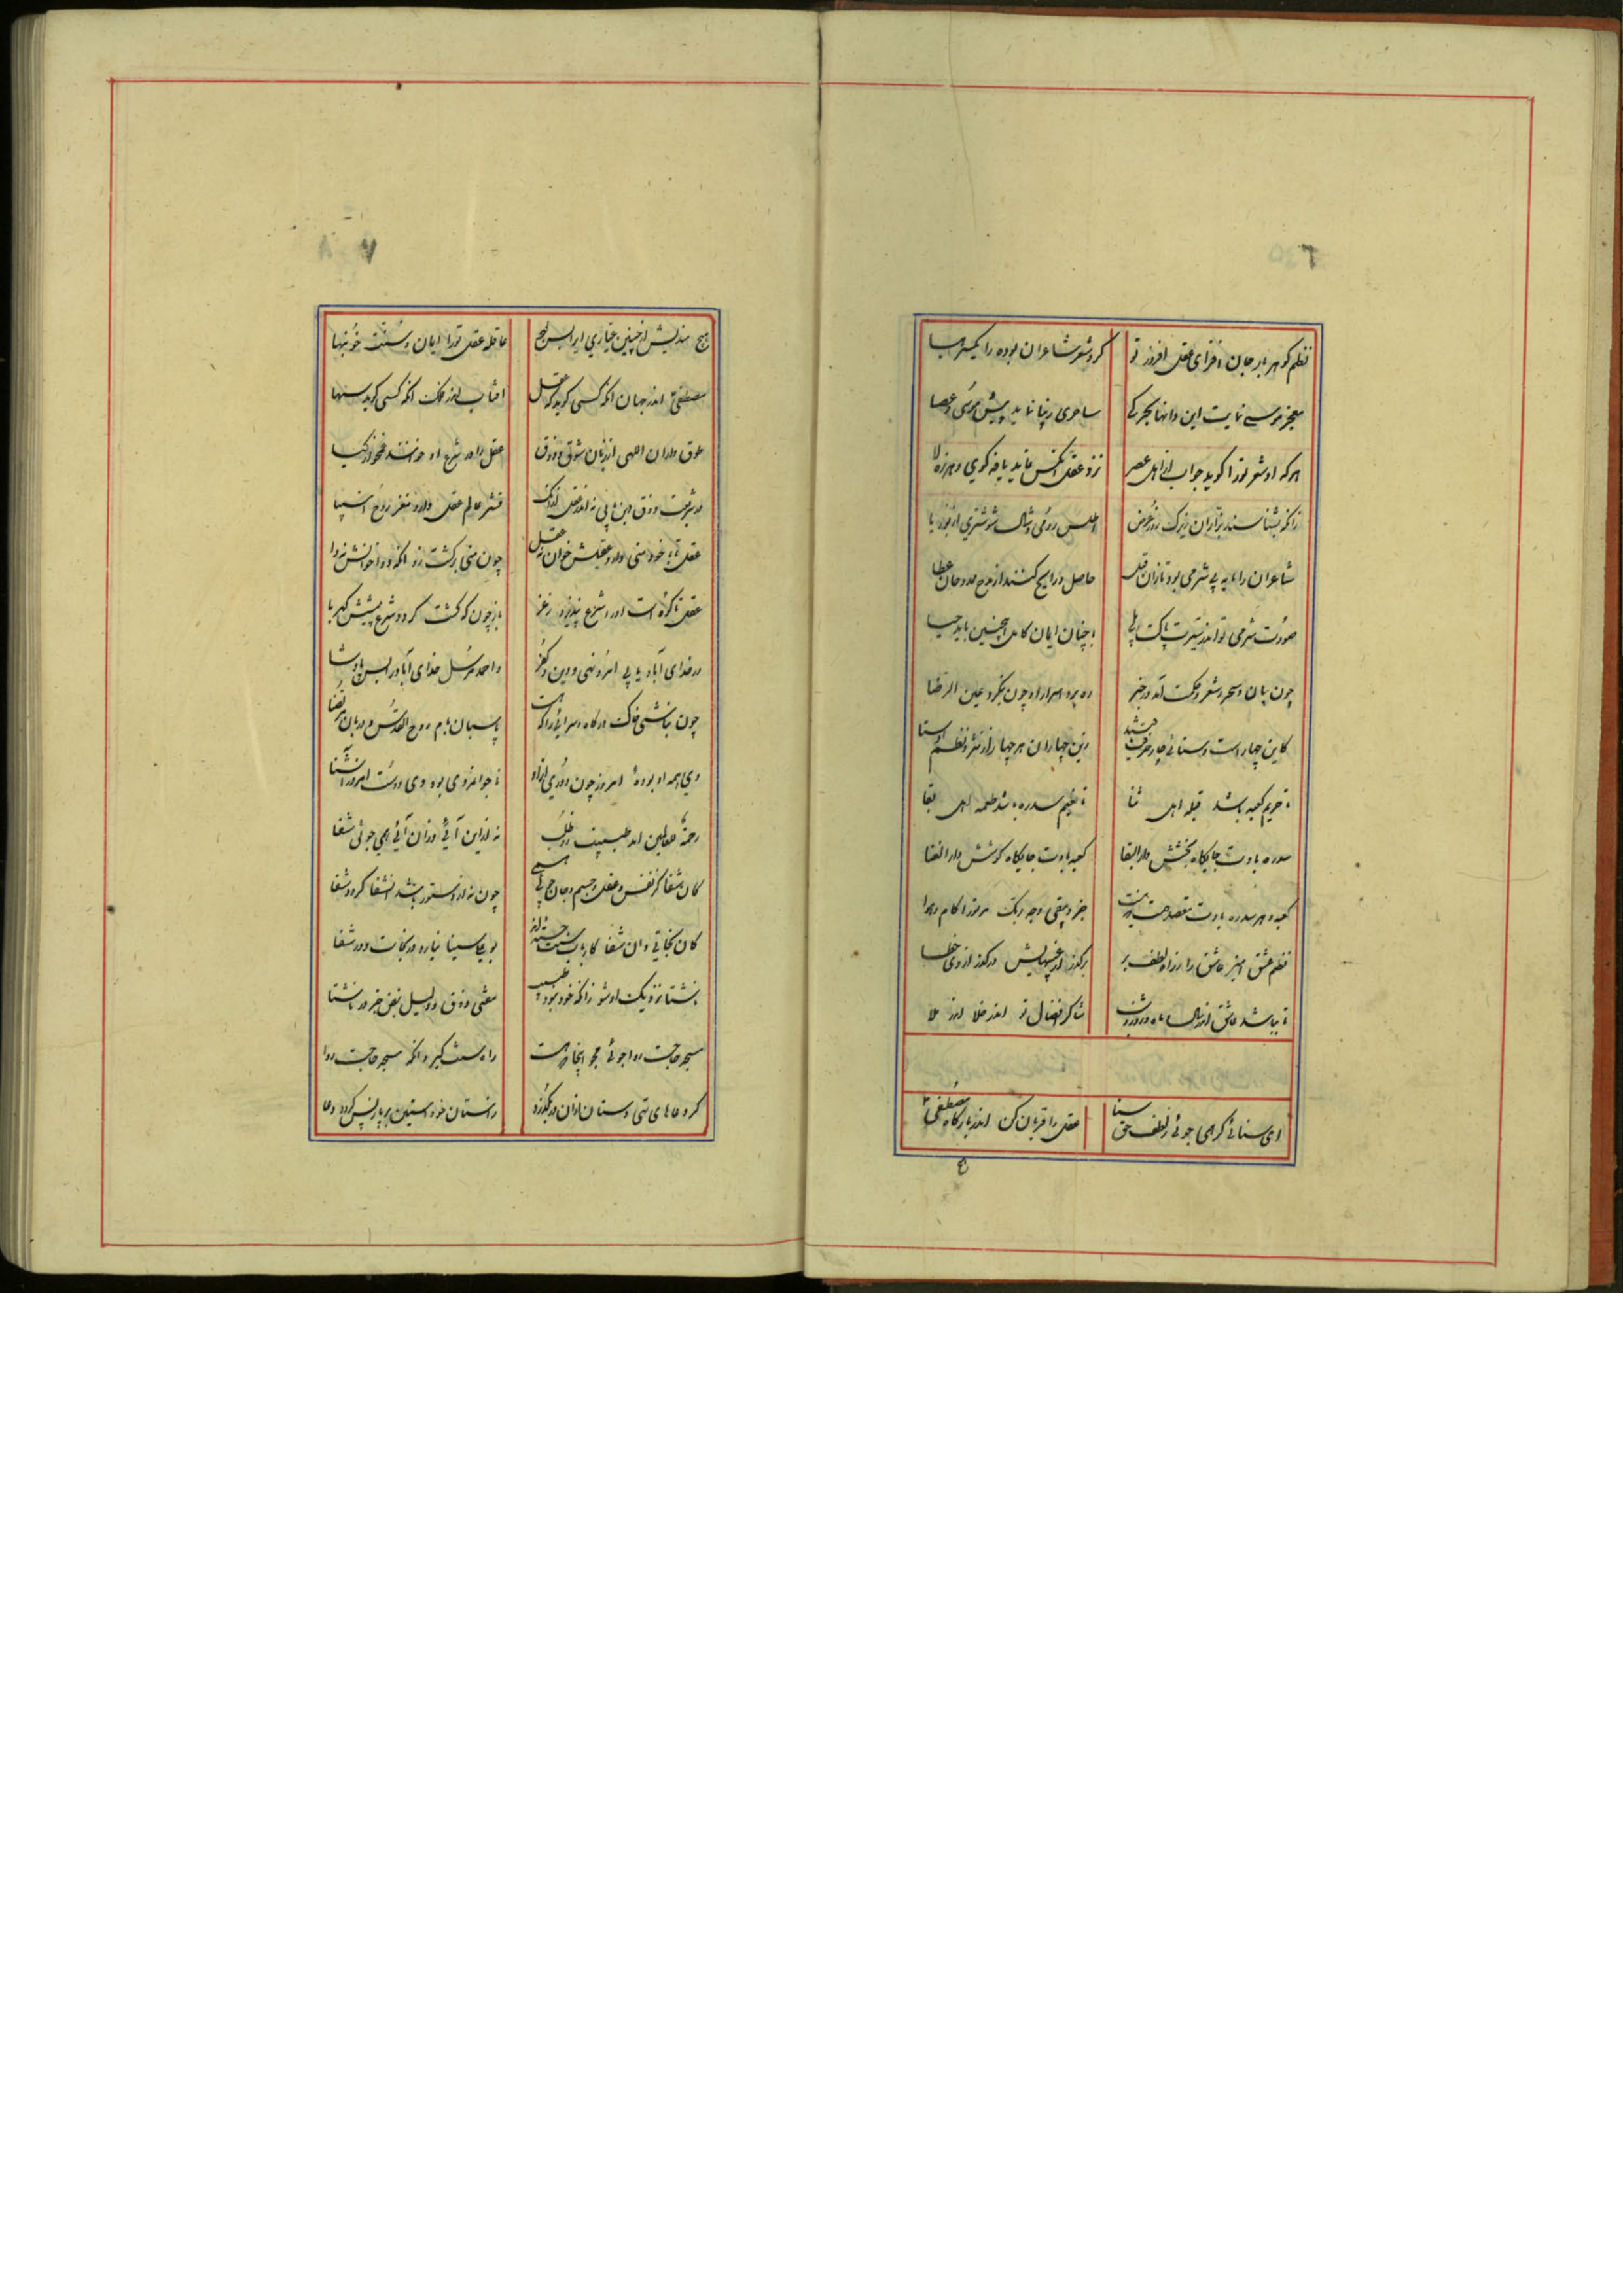 نظم گوهر بار جان افزای عقل افروز تو کرد شعر شاعران بوده را یکسر هبا
معجز موسی نمایست این و انها سحر کی ساحری زیبا نماید پیش موسی و عصا
هر که او شعر تو را گوید جواب از اهل عصر نزد عقل انکس نماید یافه گوی و هرزه لا
زانکه بشناسند بزازان زیرک روز عرض اطلس رومی و شال شوشتری از بوریا
شاعران را مایه بی شرمی بود تا زان قبل حاصل و رایج کنند از مدح ممدوحان عطا
صورت شرمی تو اندر سیرت پاکت بلی با چنان ایمان کامل اینچنین باید حیا
چون بیان و سحر و شعر و حکمت آمد در خبر ره برد اسرار او چون بنگرد عین الرضا
کاین چهار است و سنائی چار حرف زین چهار آن هر چهار از نثر و نظم
تا حریم کعبه باشد قبله اهل ثنا تا نعیم سدره باشد طعمه اهل بقا
سدره بادت جایگاه بخشش دار البقا کعبه بادت جایگاه کوشش دار الفنا
کعبه و هر سدره بادت مقصد همت جز و یبقی وجه ربک مر تو را کام و هوا
نظم عشق امیز عاشق را ز راه لطف بر برگذر از عیبهایش درگذر از وی خطا
تا بباشد عاشق از سال و ماه و روز و شب شاکر افضال تو اندر خلا اندر ملا
ای سنائی گر همی جوئی ز لطف حق سنا عقل را قربان کن اندر بارگاه مصطفی
هیچ مندیش از چنین عیاری ایرا بس عاقله عقل تو را ایمان و سنت خونبها
مصطفی اندر جهان انگه کسی گوید که عقل افتاب اندر فلک انگه کسی گوید سها
طوق داران الهی از زبان شوق و ذوق عقل را در شرع او خوانند
در شریعت ذوق دین یابی نه اندر عقل ازانک قشر عالم عقل دارد مغز روح انبیا
عقل تا با خود منی دارد عقیلش خوان نه عقل چون منی برگشت زو انگه دوا خوانش نه دا
عقل تا کوه است او را شرع نپذیرد ز عز باز چون که گشت گردد شرع پیشش کهربا
در خدای آباد یابی امر و نهی و دین و کفر و احمد مرسل خدای آباد را بس پادشا
چون نباشی خاک درگاه سرائی را که هست پاسبان بام روح القدس و دربان مرتضا
دی همه او بوده امروز چون دوری ازو ناجوانمردی بود دی دوست امروز آشنا
رحمة للعالمین امد طبیبت زو طلب نه ازین آئی و زان آئی همی جوئی شفا
کان شفا کز نفس و عقل و جسم و جان جوئی همی چون نه از دستور باشد انشفا گردد شفا
کان نجاتی و ان شفا کارباب سنت جسته اند بوعلی سینا نیارد در نجات و در شفا
ناشتا نزدیک او شو زانکه خود نبود طبیب مفتی ذوق و دلیل نبض جز در ناشتا
راه سنت گیر وانگه مسجد حاجت روا
گر دعا های تهی دستان ازان در بگذرد ز استان خود استین پر باز پس گردد دعا